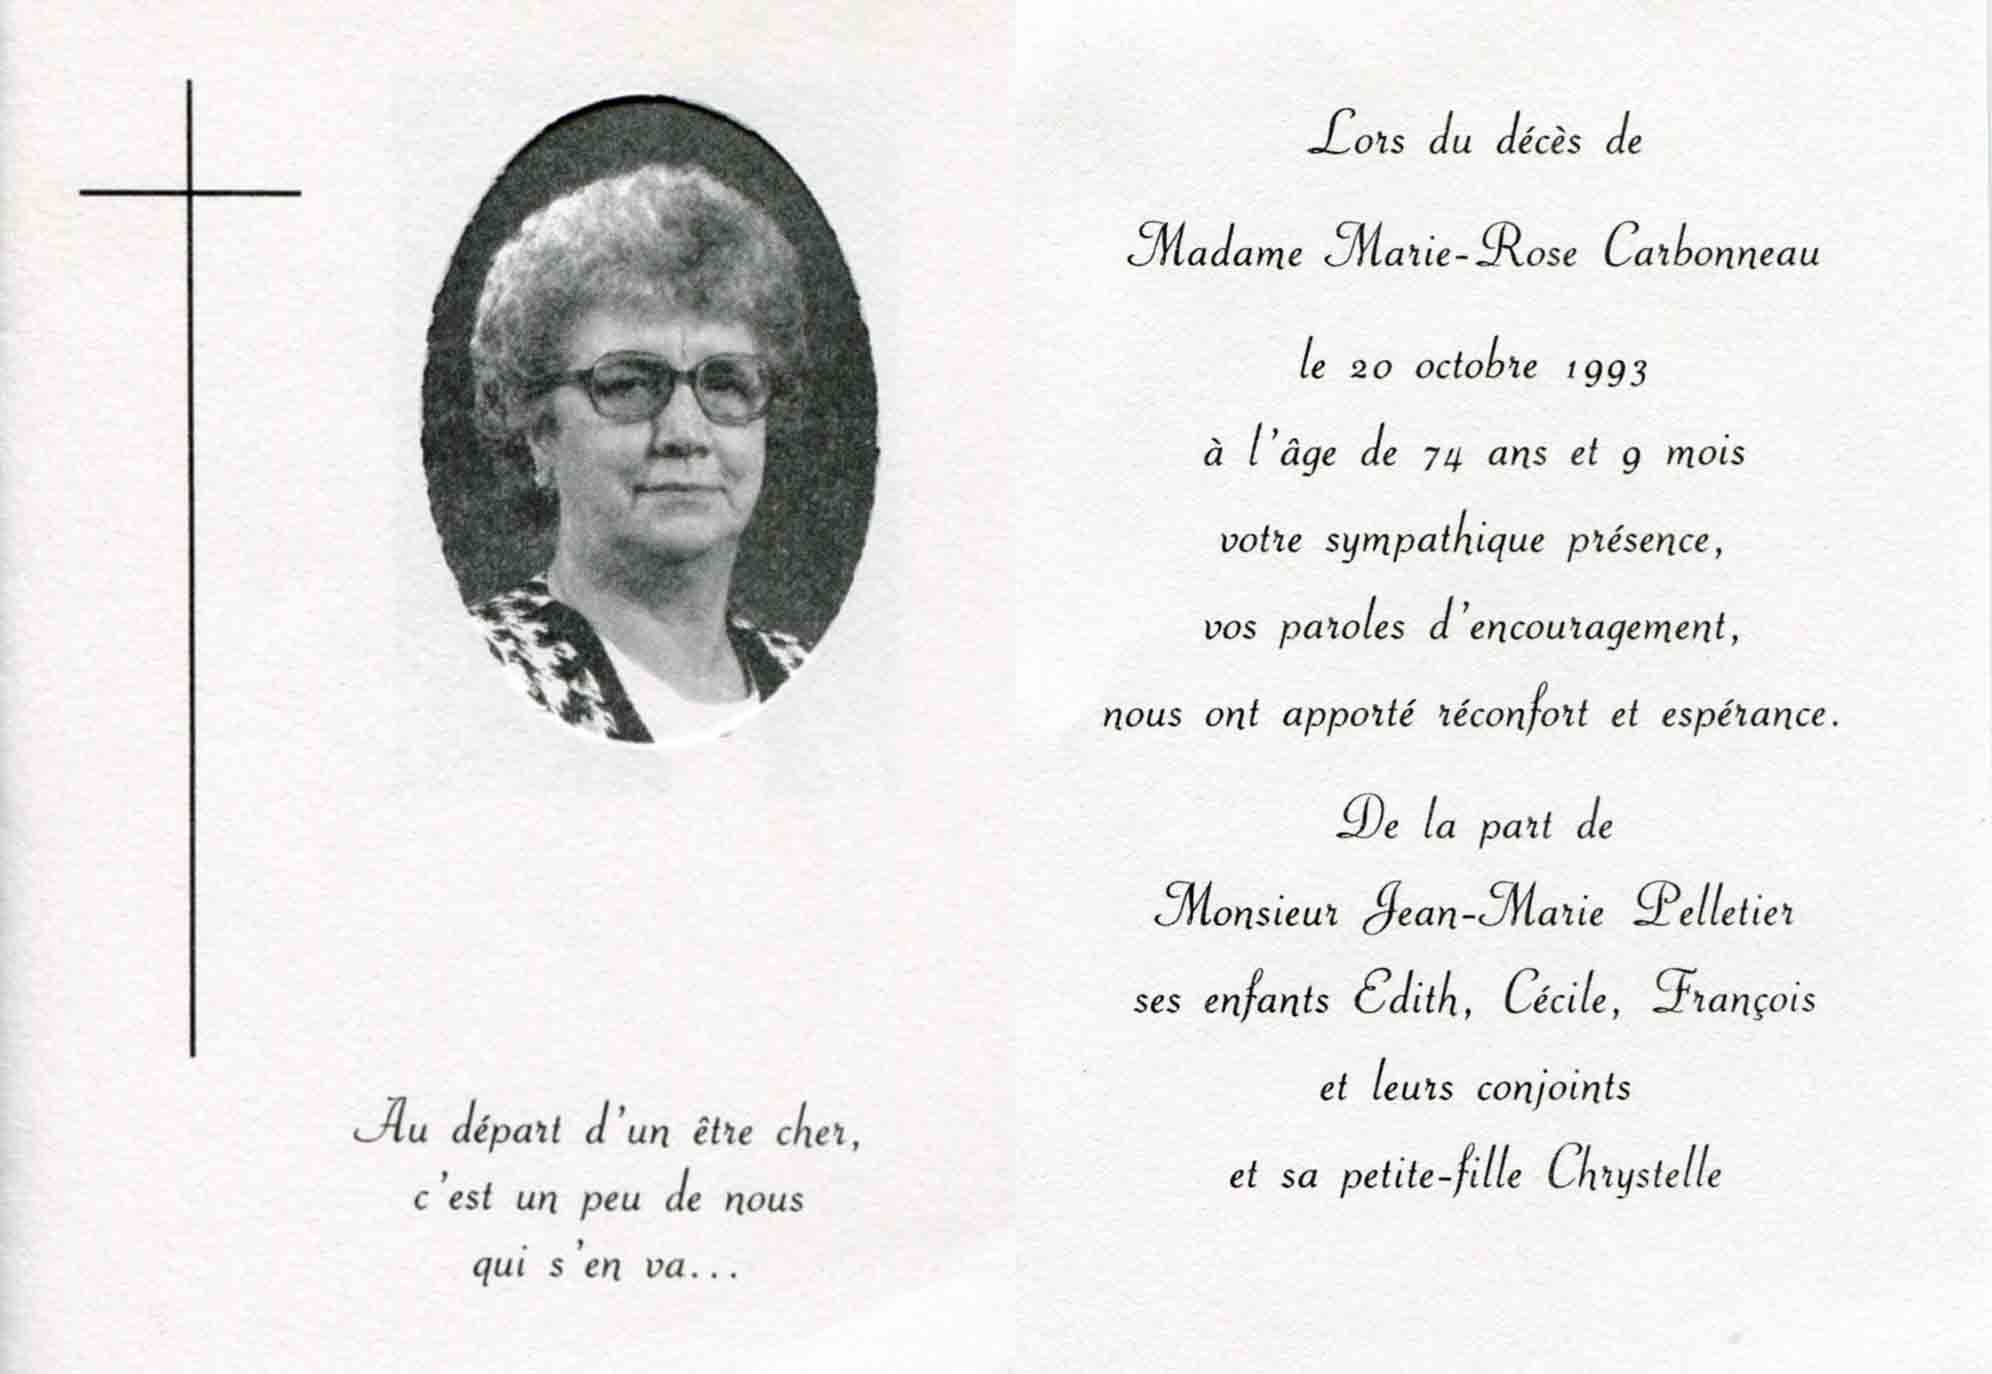 Au départ d'un être cher,
c'est un peu de nous
qui s'en va...
Lors du décès de
Madame Marie-Rose Carbonneau
le 20 octobre 1993
à l'âge de 74 ans et 9 mois
votre sympathique présence,
vos paroles d'encouragement,
nous ont apporté réconfort et espérance.
De la part de
Monsieur Jean-Marie Pelletier
ses enfants Edith, Cécile, François
et leurs conjoints
et sa petite-fille Chrystelle